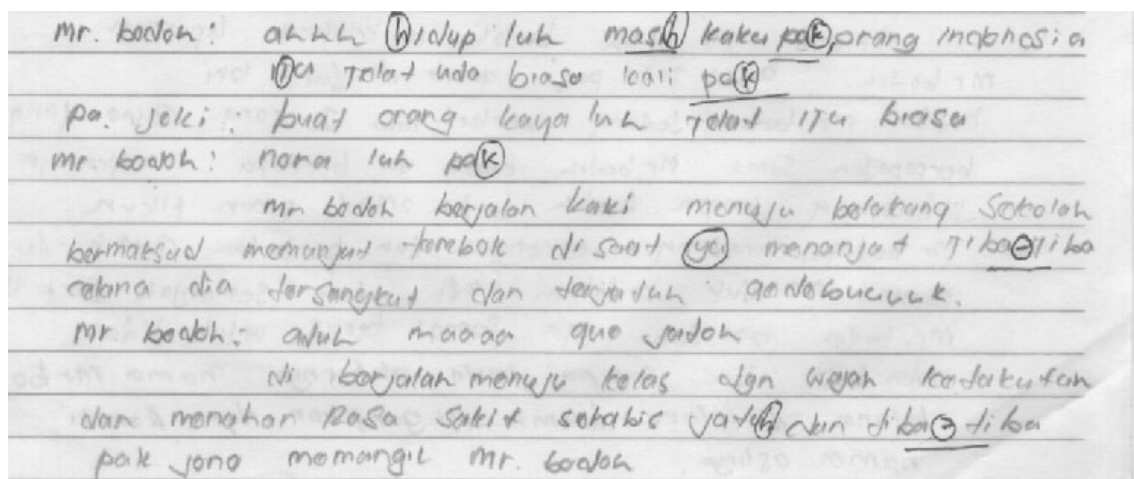 mr. bodoh: ahhh hidup luh masih kaku pak, orang indonesia
itu telat uda biasa kali pak
pa. joki: buat orang kaya luh telat itu biasa
mr bodoh: nora luh pak
mr bodoh berjalan kaki menuju belakang sekolah
bermaksud memanjat tembok di saat ya menanjat tiba-tiba
celana dia tersangkut dan terjatuh gedebuuuuk.
mr bodoh: aduh maaaa gue jatoh
di berjalan menuju kelas dgn wajah ketakutan
dan menahan rasa sakit sehabis jatuh dan tiba-tiba
pak jono memangil mr. bodoh